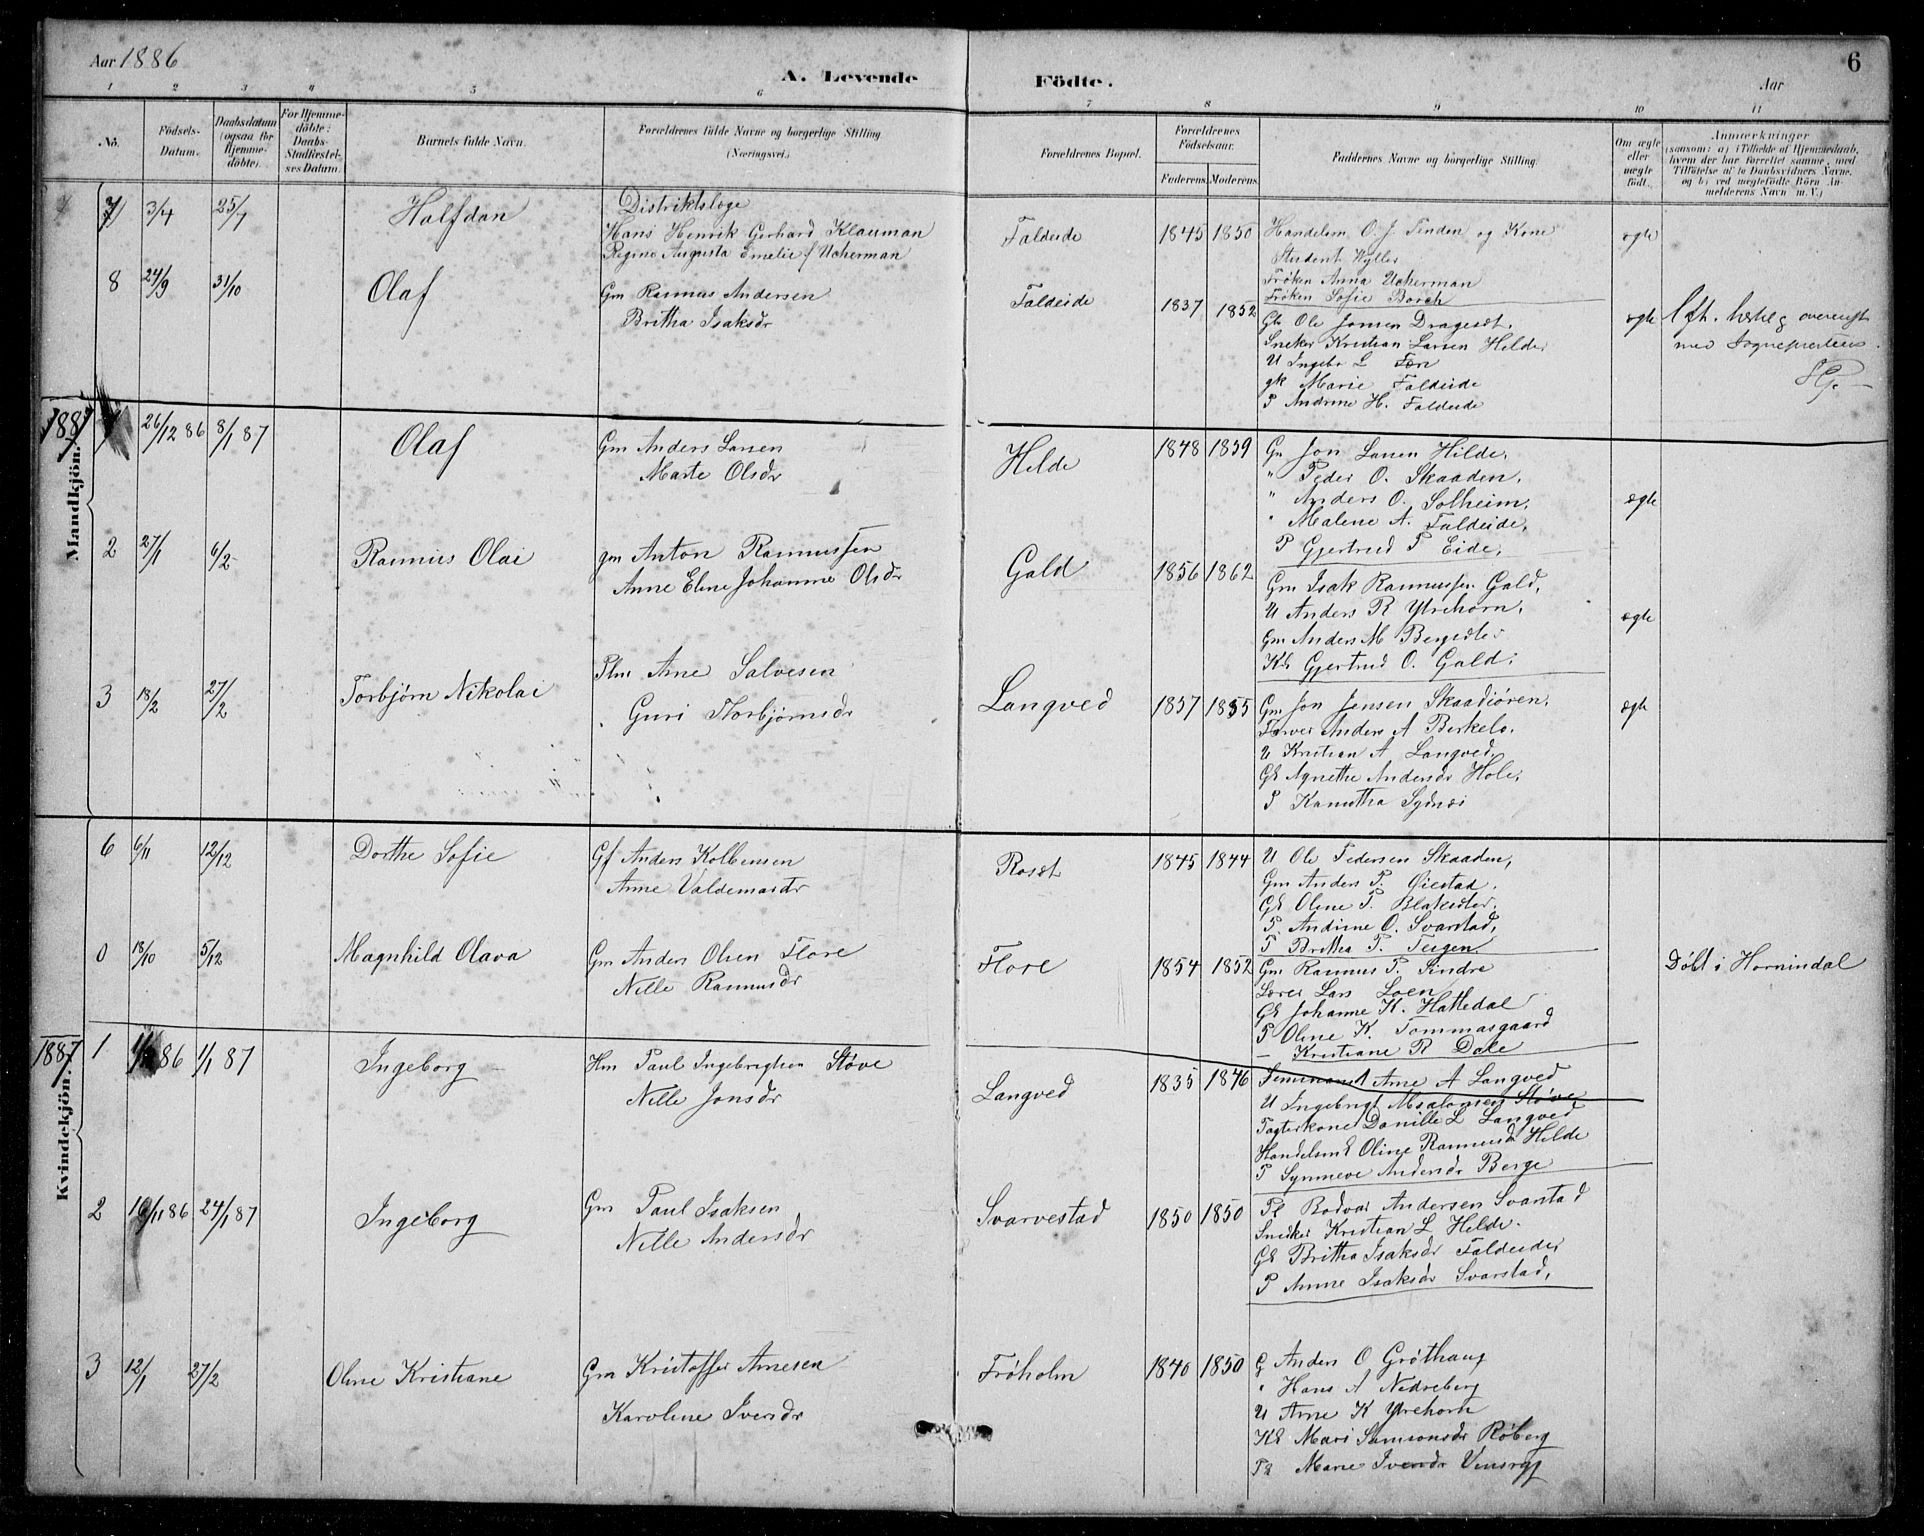 Aar 1886
A. Levende Födte.
Aar
6
1 2 3 4 5 6 7 8 9 10 11
No.
Födsels-Datum.
Daabsdatum (ogsaa for Hjemme-döbte).
For Hjemme-döbte: Daabs-Stadfæstel-ses Datum.
Barnets fulde Navn.
Forældrenes fulde Navne og borgerlige Stilling (Næringsvei.)
Forældrenes Bopæl.
Forældrenes Födselsaar.
Faderens. Moderens.
Faddernes Navne og borgerlige Stilling.
Om ægte eller uægte födt.
Anmærkninger
(saasom: a) i Tilfælde af Hjemmedaab, hvem der har forrettet samme, med Tilföielse af to Daabsvidners Navne, og b) ved uægtefödte Börn An-melderens Navn m. V.)
7 3/4 25/7 Halfdan
Distriktslæge
Hans Henrik Gerhard Klauman
Regine Augusta Emelie f Ucherman
Faldeide 1845 1850
Handelsm O. J. Tenden og Kone
Student Nyller
Frøken Anna Ucherman
Frøken Sofie Borch
ægte
8 24/9 31/10 Olaf
Gm Rasmus Andersen
Britha Isaksdr
Faldeide 1837 1852
Gk Ole Jonsen Drageset.
Sneker Kristian Larsen Hilde
U Ingebr L
gk Marie Faldeide
P Andrine H. Faldeide
ægte
med Sognepresten
Mandkjön.
1887 1 26/12 86 8/1 87 Olaf
Gm Anders Larsen
Marte Olsdr
Hilde 1848 1859
Gm Jon Larsen Hilde,
" Peder O. Skaaden,
" Anders O. Solheim,
" Malene A. Faldeide,
P Gjertrud P Eide,
ægte
2 27/1 6/2 Rasmus Olai
gm Anton Rasmussen
Anne Eline Johanne Olsdr
Gald 1856 1862
Gm Isak Rasmussen Gald,
U Anders R Ytrehorn,
Gm Anders M Bergsdtr
Kk Gjertrud O. Gald.
ægte
3 18/2 27/2 Torbjörn Nikolai
Plm Arne Salvesen
Guri Thorbjörnsdr
Langved 1857 1855
Gm Jon Jensen Skaadiøren,
Farver Anders A Berkelo.
U Kristian A Langved,
Gk Agnethe Andersdr Hole,
P Kanutha Sydnæs
ægte
Kvindekjön.
6 6/11 12/12 Dorthe Sofie
Gf Anders Kolbensen
Anne Valdemarsdr
Roset 1845 1844
U Ole Pedersen Skaaden,
Gm Anders P. Øiestad.
Gk Oline P. Blaksdter.
P. Andrine O. Svarstad,
P Britha P. Teigen
0 18/10 5/12 Magnhild Olava
Gm Anders Olsen Flore
Nille Rasmusdr
Flore 1854 1852
Gm Rasmus P. Sindre
Lærer Lars Loen
Gk Johanne K. Hattedal
P Oline K. Tommasgaard
— Kristiane R Dale
Döbt i Hornindal
1887 1 86 1/1 87 Ingeborg
Hm Paul Ingebrigtsen Støve
Nille Jonsdr
Langved 1835 1846
Seminarist Arne A Langved
U Ingebrigt Absalonsen Støve
Fagterkone Danille L Langved
Handelsmk Oline Rasmusd Hilde
P Synneve Andersdr Berge
2 16/11 86 24/1 87 Ingeborg
Gm Paul Isaksen
Nille Andersdr
Svarvestad 1850 1850
Pl Bodvar Andersen Svarstad
Snidker Kristian L Hilde.
Gk Britha Isaksdr Faldeide
P Anne Isaksdr Svarstad,
3 12/1 27/2 Oline Kristiane
Gm Kristoffer Arnesen
Karoline Iversdr
Frøholm 1840 1850
G Anders O Grøthaug
" Hans A Nedreberg
U Arne K Ytrehorn
Kk Mari Samsonsdr Røberg
Marie Iversdr